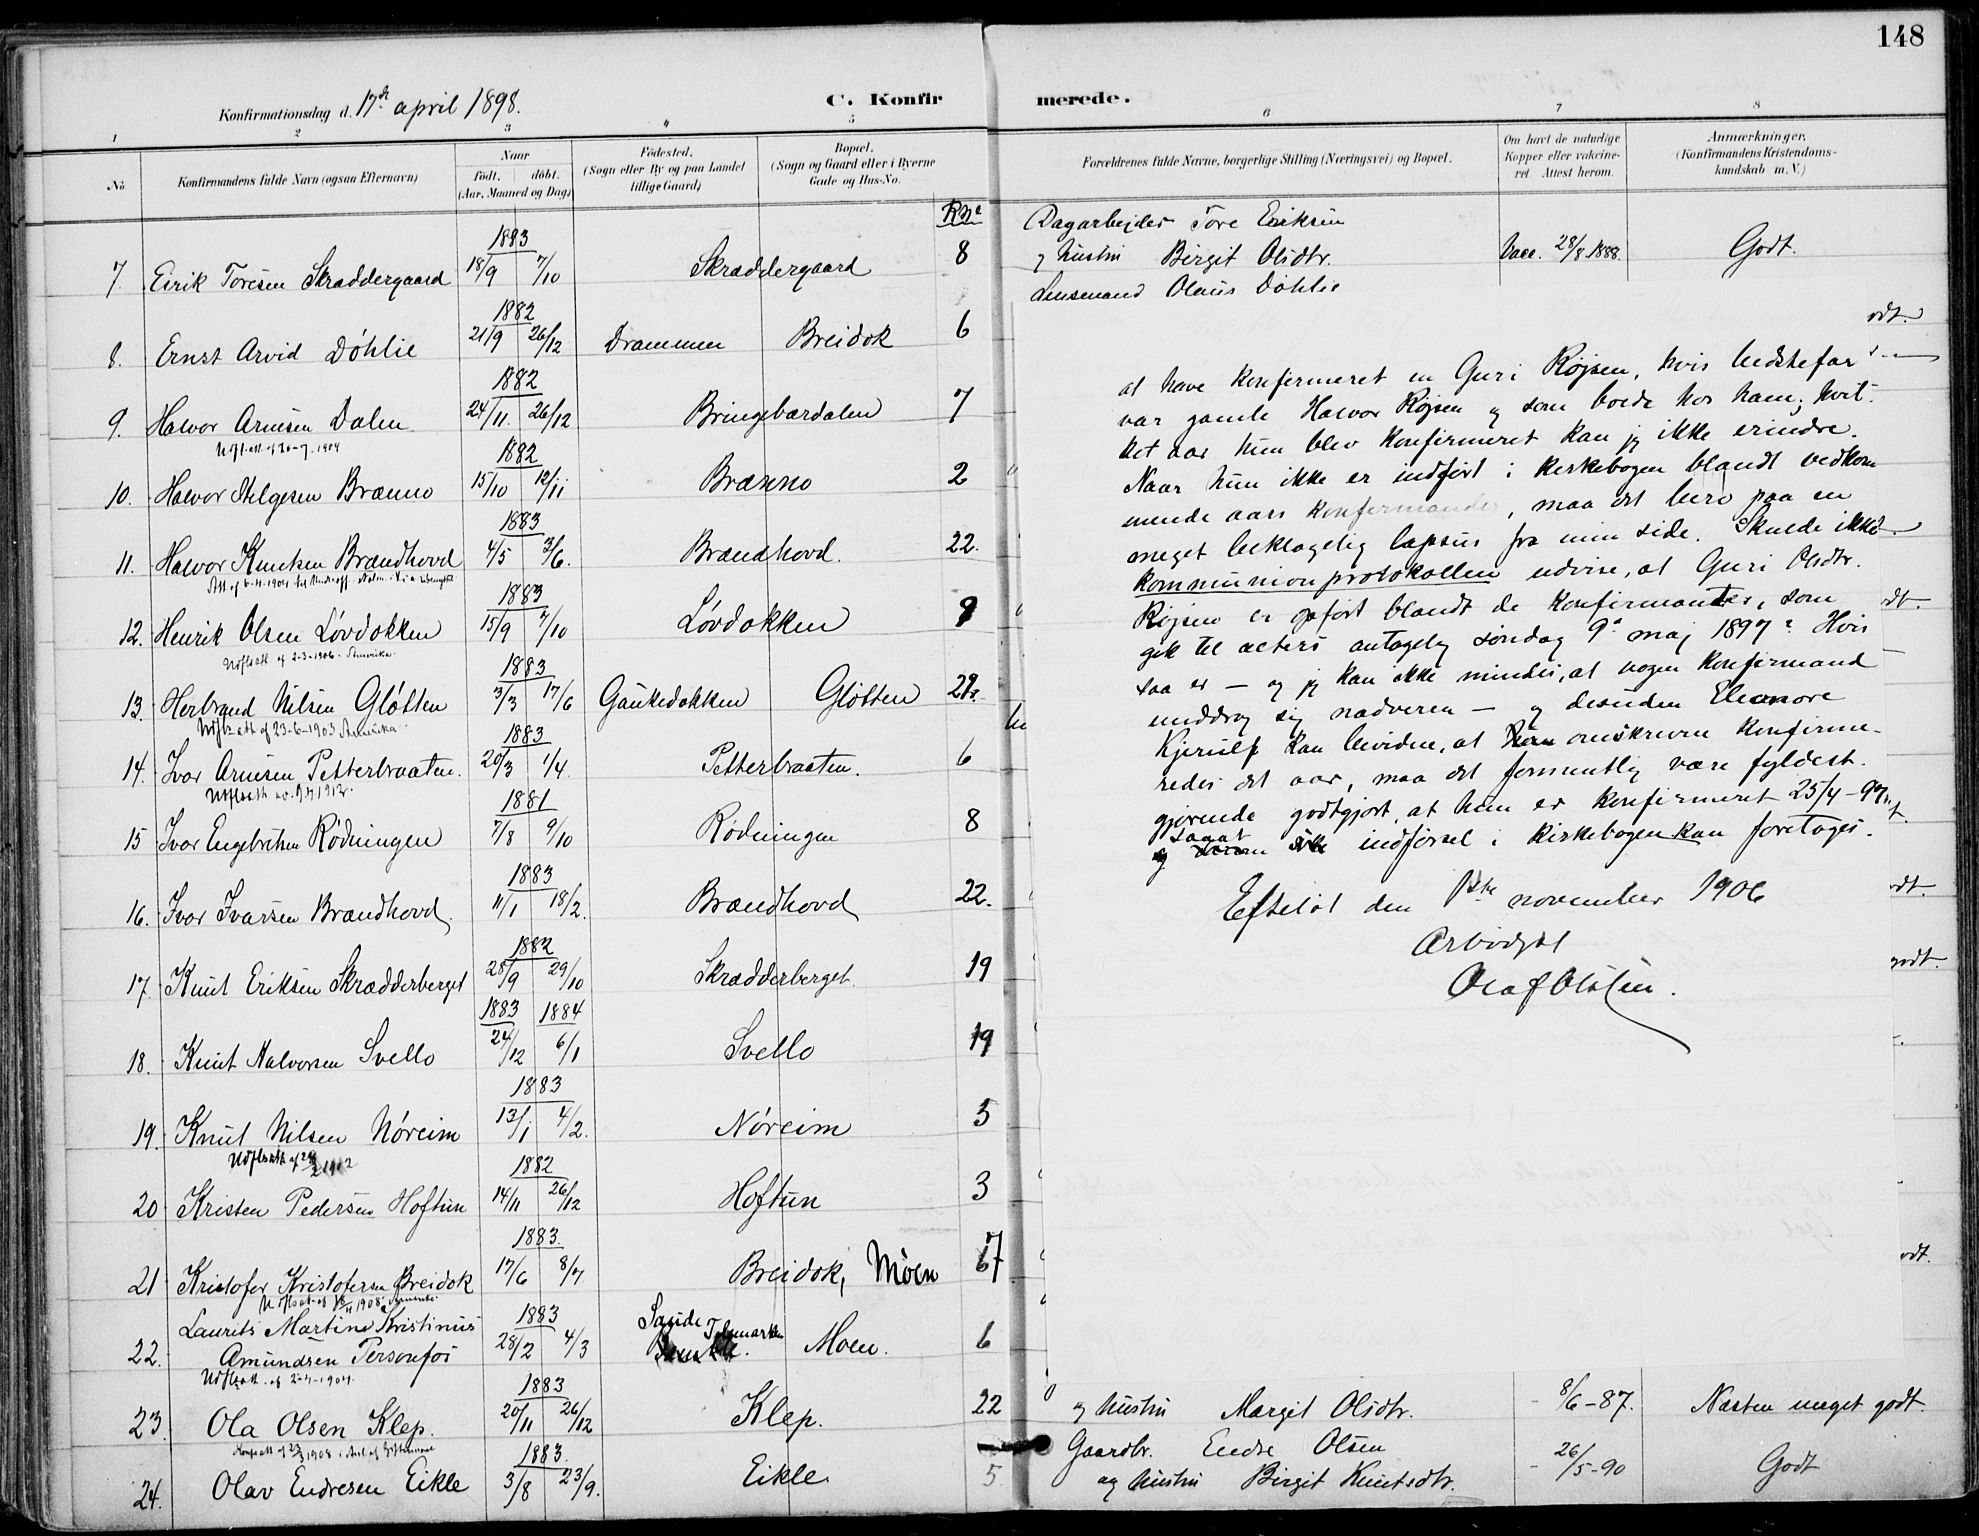 148
Konfirmationsdag d. 17de april 1898.
C. Konfirmerede.
1 2 3 4 5 6 7 8
No.
Konfirmandens fulde Navn (ogsaa Efternavn)
Naar
født. døbt.
(Aar, Maaned og Dag)
Fødested.
(Sogn eller By og paa Landet
tillige Gaard)
Bopæl.
(Sogn og Gaard eller i Byerne
Gade og Hus-No.
Forældrenes fulde Navne, borgerlige Stilling (Næringsvei) og Bopæl.
Om havt de naturlige
Kopper eller vakcine-
ret. Attest herom.
Anmærkninger.
(Konfirmandens Kristendoms-
kundskab m. V.)
7. Eirik Toresen Skraddergaard 1883 18/9 7/10 Skraddergaard 8
Dagarbejder Tore Eriksen
og hustru Birgit Olsdtr. Vacc. 28/8 1888. Godt.
Lensmand Olaus Døhlie
8. Ernst Arvid Døhlie 1882 21/9 26/12 Drammen Breidok 6
9. Halvor Arnesen Dalen 1882 24/11. 26/12 Bringebærdalen 7
Udfl.att. af 20-7-1904
10. Halvor Helgesen Brænno 1882 15/10 12/11 Brænno 2
11. Halvor Knutsen Brændhovd 1883 4/5 3/6. Brændhovd. 22.
12. Henrik Olsen Løvdokken 1883 15/9 7/10 Løvdokken 9
Udfl.att. af 2-3-1906. Amerika.
13. Herbrand Nilsen Gløtten 1883 3/3 17/6 Gaukedokken Gløtten 22.
Udfl.att. af 23-6-1903 Amerika
14. Ivar Arnesen Petterbraaten. 1883 20/3 1/4. Petterbraaten. 6
15 Ivar Engebretsen Rødningen 1881 7/8 9/10 Rødningen 8
16. Ivar Ivarsen Brændhovd. 1883 11/1 18/2. Brændhovd 22.
17. Knut Eriksen Skrædderberget 1882 28/9 29/10 Skrædderberget. 19
18. Knut Halvorsen Svello 1883 24/12 1884 6/1 Svello 19
19. Knut Nilsen Nøreim 1883 13/1 4/2. Nøreim 5
20 Kristen Pedersen Hoftun 1882 14/11 26/12 Hoftun 3
21 Kristofer Kristofersen Breidok 1883. 17/6 8/7 Breidok, Moen 67
22. Laurits Martin Kristinius
Amundsen Personfos 1883 28/2 4/3 Saude Telemarken Moen. 6
Udfl.att. af 2-4-1904.
23. Ola Olsen Klep. 1883 20/11 26/12 Klep. 22
og hustru Margit Olsdtr. 8/6-87. Næsten meget godt.
24. Olav Endresen Eikle 1883. 3/8 23/9. Eikle 5
Gaardbr. Endre Olsen
og hustru Birgit Knutsdtr. 26/5-90 Godt
at have konfirmeret en Guri Røjsen, hvis bedstefar
var gamle Halvor Røjsen og som boede hos ham; hvil-
ket aar hun blev konfirmeret kan jeg ikke erindre.
Naar hun ikke er indført i kirkebogen blandt vedkom
mende aars konfirmander, maa det bero paa en
meget beklagelig lapsus fra min side. Skulde ikke
kommunionprotokollen udvise, at Guri Olsdtr.
Røjsen er opført blandt de konfirmanter, som
gik til alters antagelig søndag 9de maj 1897? Hvis
saa er — og jeg kan ikke mindes, at nogen konfirmand
unddrog sig nadveren — og desuden Eleonore
Kjerulf kan bevidne, at omskrevne konfirme-
redes det aar, maa det formentlig være fyldest-
gjørende godtgjort, at hun er konfirmeret 25/4-97,
saaat indførsel i kirkebogen kan foretages.
Efteløt den 1ste november 1906
Ærbødigst
Olaf Olsen.